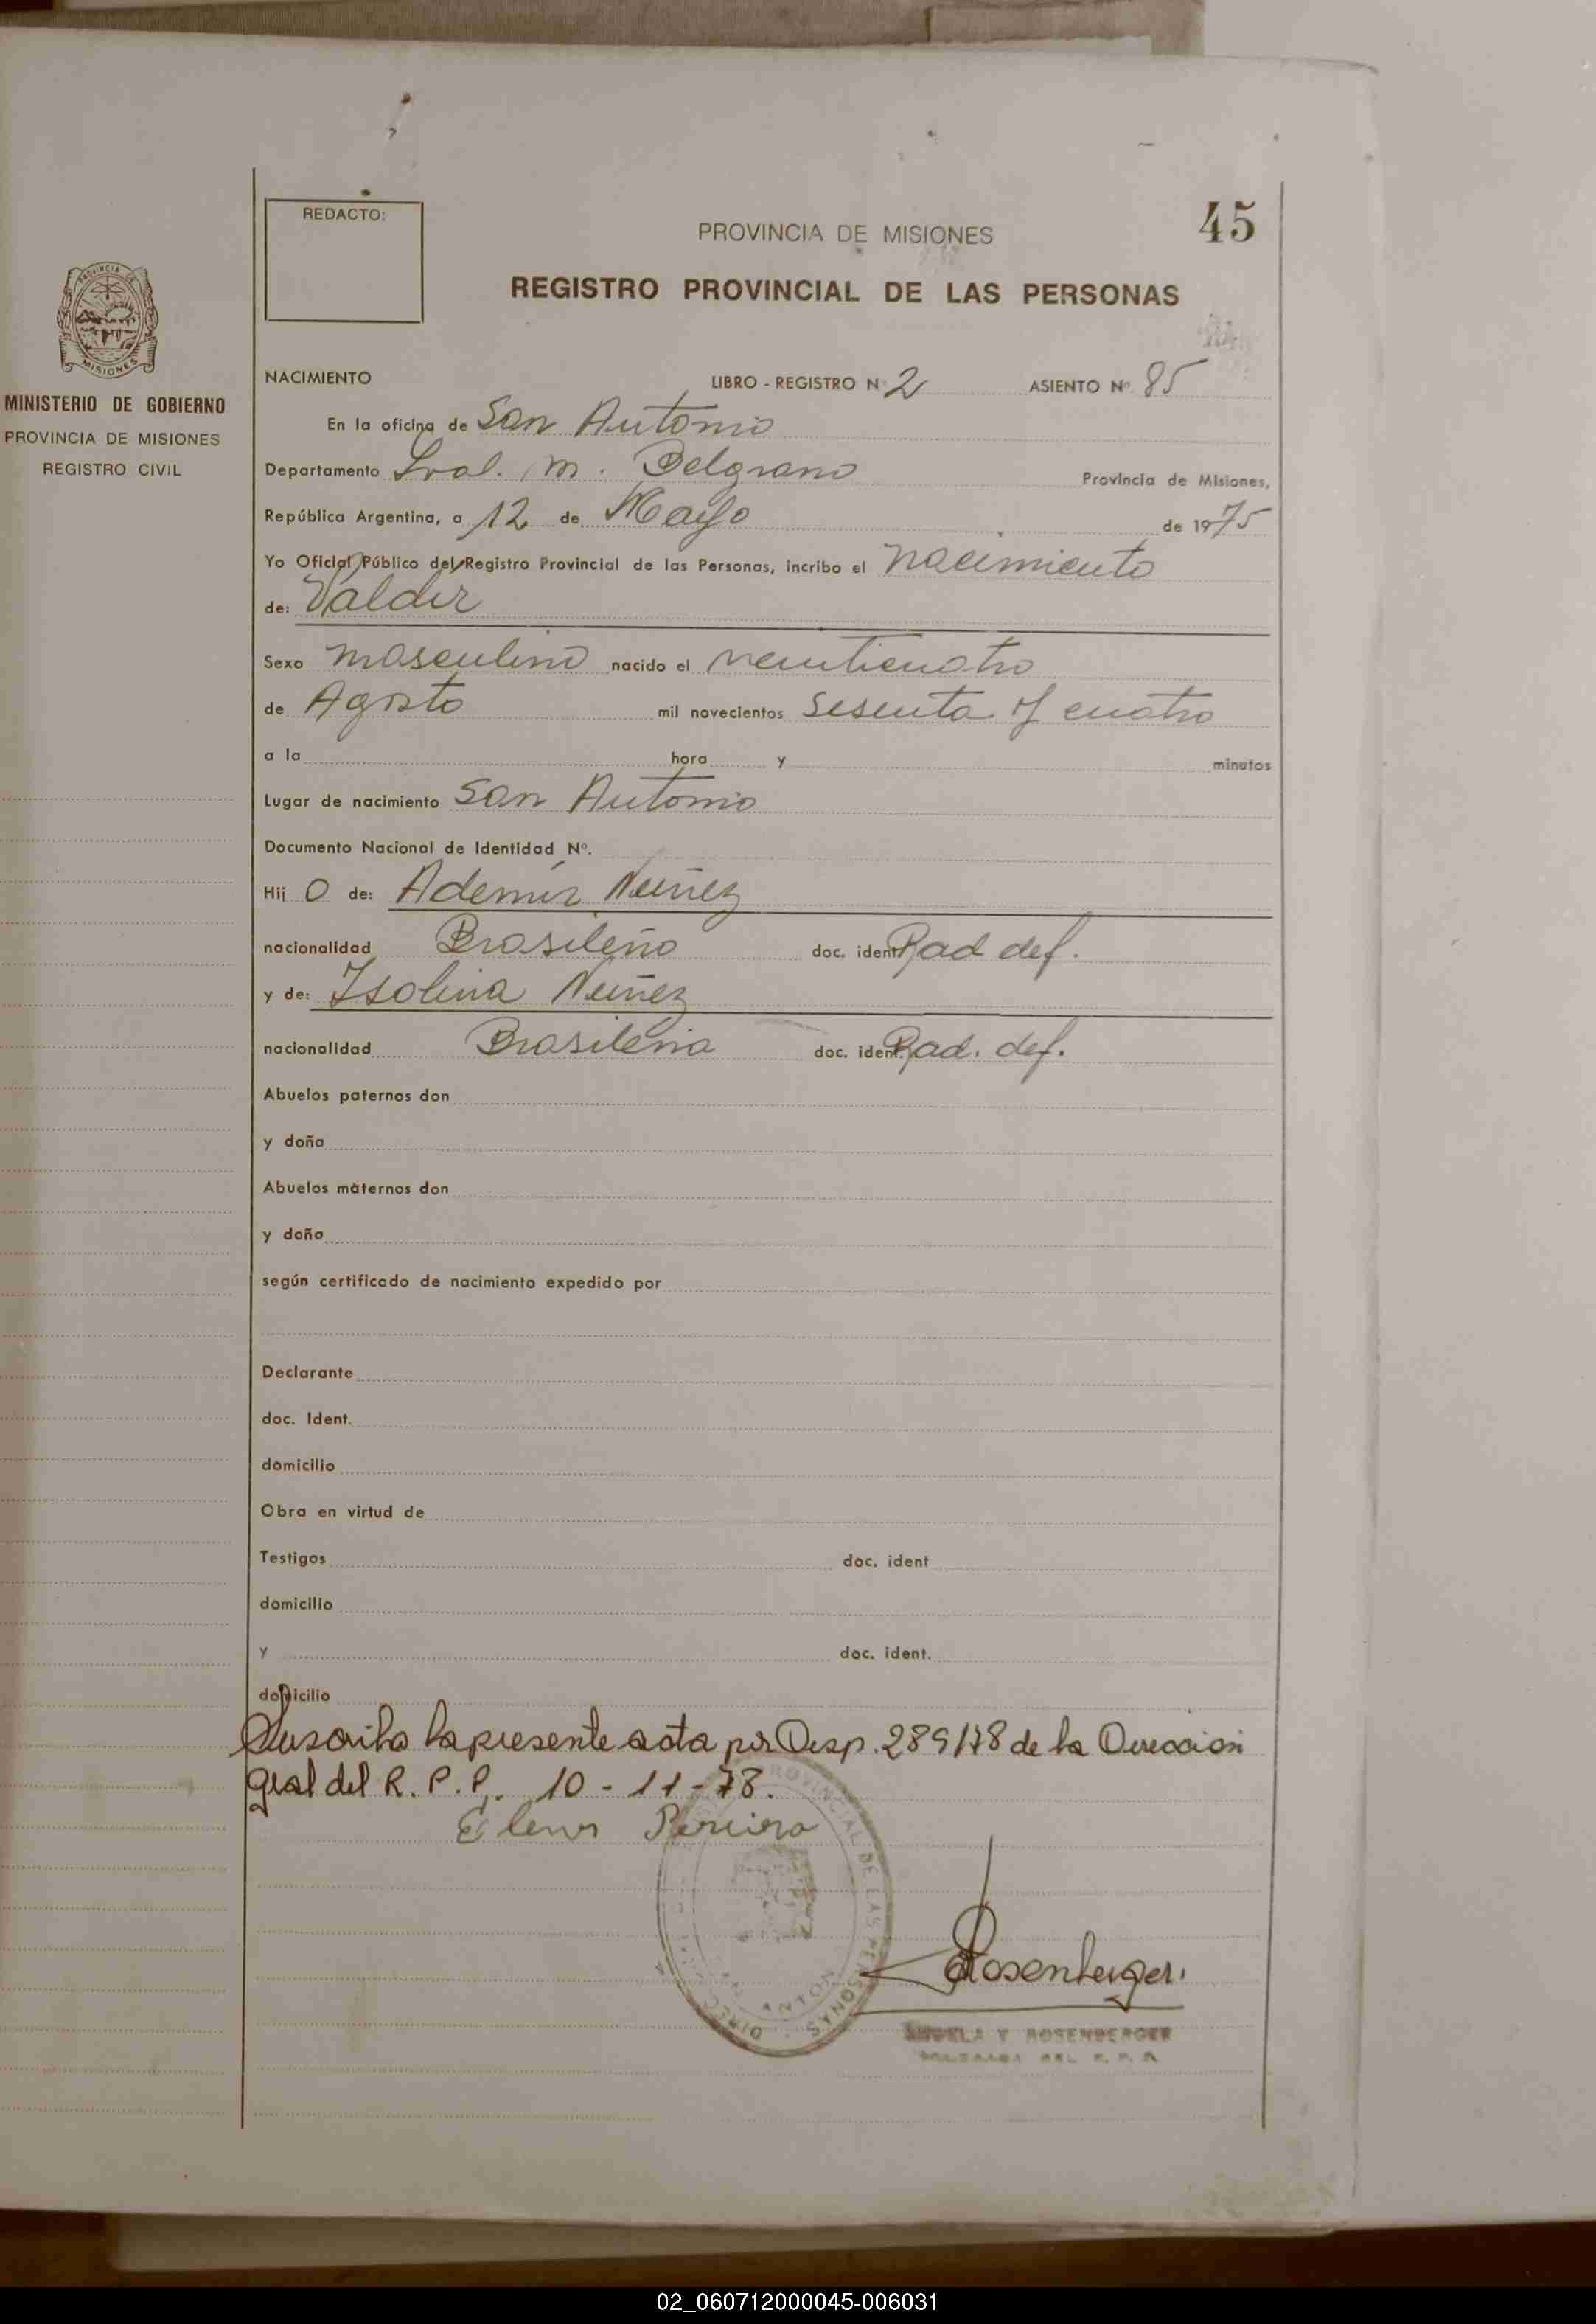 REDACTO:
PROVINCIA DE MISIONES
45
REGISTRO PROVINCIAL DE LAS PERSONAS
PROVINCIA DE
MISIONES
MINISTERIO DE GOBIERNO
PROVINCIA DE MISIONES
REGISTRO CIVIL
NACIMIENTO LIBRO - REGISTRO Nº 2 ASIENTO Nº 85
En la oficina de San Antonio
Departamento Gral. M. Belgrano Provincia de Misiones,
República Argentina, a 12 de Mayo de 1975
Yo Oficial Público del Registro Provincial de las Personas, incribo el nacimiento
de: Valdir
Sexo masculino nacido el veinticuatro
de Agosto mil novecientos sesenta y cuatro
a la hora y minutos
Lugar de nacimiento San Antonio
Documento Nacional de Identidad Nº.
Hij o de: Ademir Nuñez
nacionalidad Brasileño doc. ident. Rad def.
y de: Isolina Nuñez
nacionalidad Brasileña doc. ident. Rad. def.
Abuelos paternos don
y doña
Abuelos maternos don
y doña
según certificado de nacimiento expedido por
Declarante
doc. Ident.
domicilio
Obra en virtud de
Testigos doc. ident
domicilio
y doc. ident.
domicilio
Suscrita la presente acta por Disp. 289/78 de la Direccion
gral del R. P. P. 10-11-78.
Pereira
DIREC PROVINCIAL DE LAS PERSONAS
Rosenberger
ROSENBERGER
02_060712000045-006031